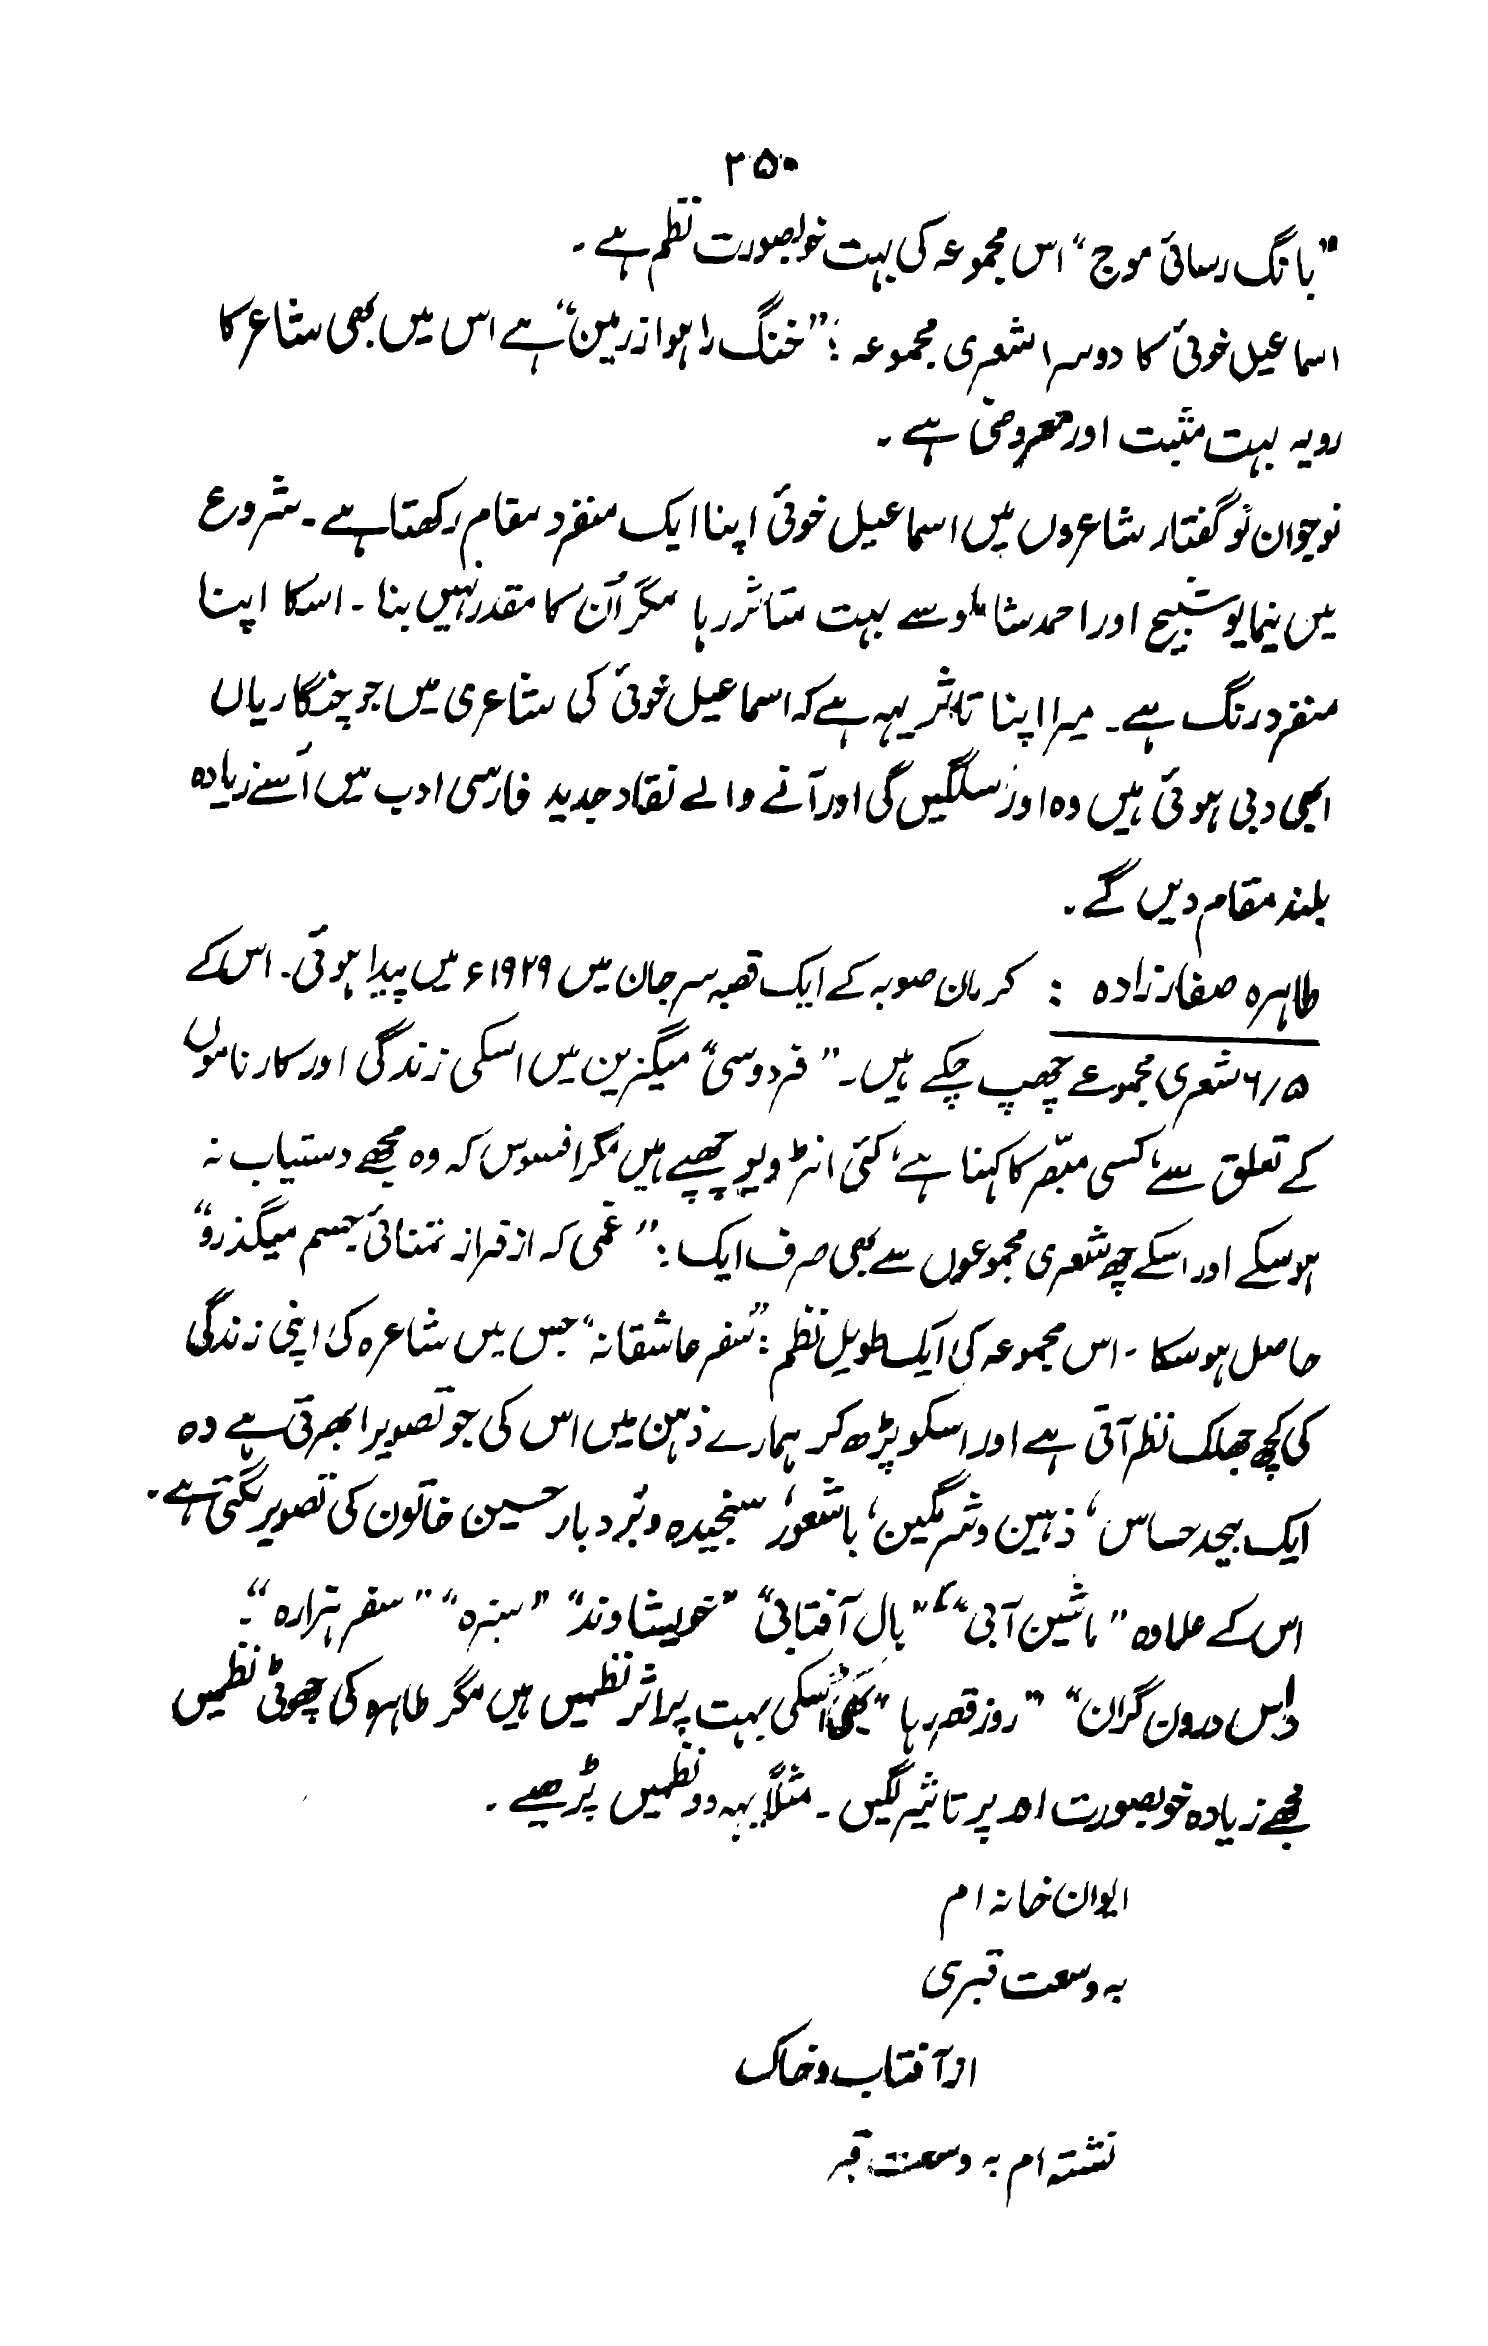 ۲۵۰
"بانگ رسائی موج" اس مجموعہ کی بہت خوبصورت نظم ہے ۔
اسماعیل خوئی کا دوسرا شعری مجموعہ : "خنگ راہوار زمین" ہے اس میں بھی شاعر کا
رویہ بہت مثبت اور معروضی ہے ۔
نوجوان نوگفتار شاعروں میں اسماعیل خوئی اپنا ایک منفرد مقام رکھتا ہے ۔ شروع
میں نیما یوشیج اور احمد شاملو سے بہت متاثر رہا مگر اُن کا مقدر نہیں بنا ۔ اسکا اپنا
منفرد رنگ ہے ۔ میرا اپنا تاثر یہہ ہے کہ اسماعیل خوئی کی شاعری میں جو چنگاریاں
ابھی دبی ہوئی ہیں وہ اور سلگیں گی اور آنے والے نقاد جدید فارسی ادب میں اُسے زیادہ
بلند مقام دیں گے ۔
طاہرہ صفارزادہ : کرمان صوبہ کے ایک قصبہ سرجان میں ۱۹۲۹ء میں پیدا ہوئی ۔ اس کے
۶/۵ شعری مجموعے چھپ چکے ہیں ۔ "فردوسی" میگزین میں اسکی زندگی اور کارناموں
کے تعلق سے، کسی مبصّر کا کہنا ہے، کئی انٹرویو چھپے ہیں مگر افسوس کہ وہ مجھے دستیاب نہ
ہو سکے اور اسکے چھ شعری مجموعوں سے بھی صرف ایک : "غمی کہ از فراز تمنائی جسم میگذرو"
حاصل ہو سکا ۔ اس مجموعہ کی ایک طویل نظم : "سفر عاشقانہ" جس میں شاعرہ کی اپنی زندگی
کی کچھ جھلک نظر آتی ہے اور اسکو پڑھ کر ہمارے ذہن میں اس کی جو تصویر ابھرتی ہے وہ
ایک بیحد حساس، ذہین و شرمگین، باشعور، سنجیدہ و بُردبار حسین خاتون کی تصویر لگتی ہے ۔
اس کے علاوہ "ماشین آبی" "بال آفتابی" "خویشاوند" "سبزہ" "سفر ہزارہ" ۔
داس درون گران" "روز قصرہا" بھی اُسکی بہت پراثر نظمیں ہیں مگر طاہرہ کی چھوٹی نظمیں
مجھے زیادہ خوبصورت اور پر تاثیر لگیں ۔ مثلاً یہہ دو نظمیں پڑھیے ۔
ایوان خانہ ام
بہ وسعت قبری
از آفتاب و خاک
نشتہ ام بہ وسعت قبر